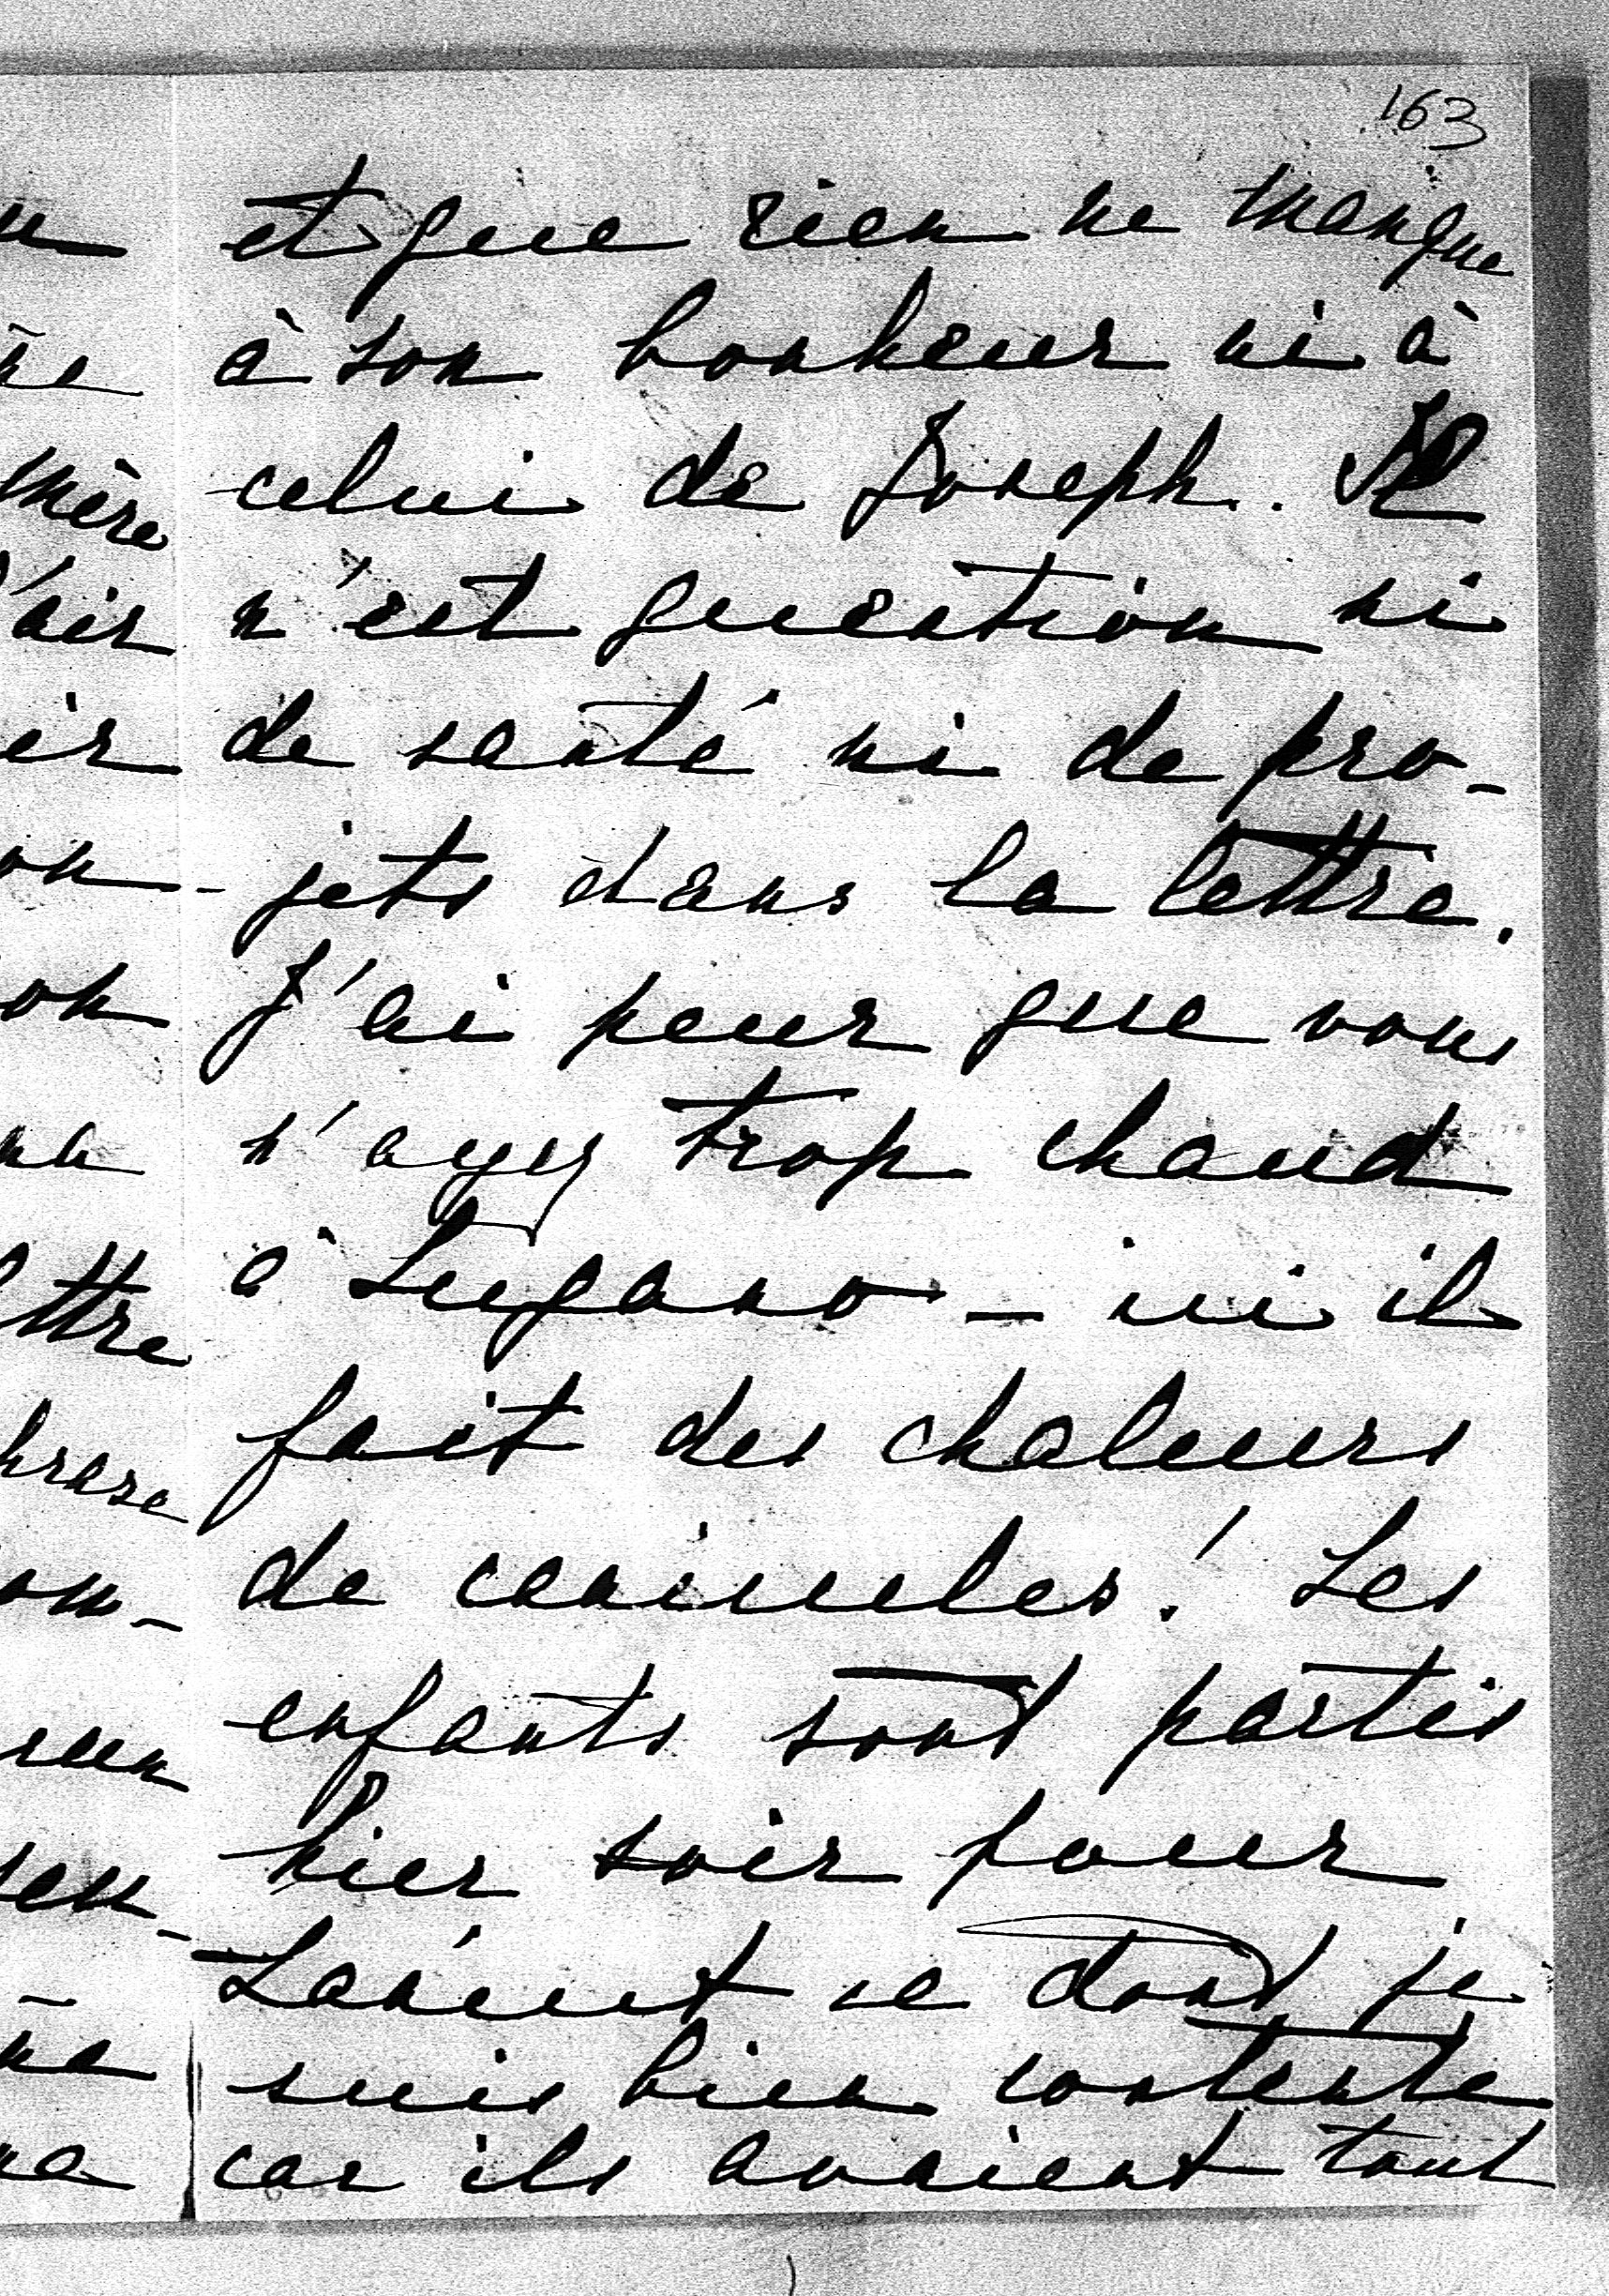 163
et que rien ne manque
à son bonheur ni à
celui de Joseph. Il
n'est question ni
de santé ni de pro-
jets dans la lettre.
J'ai peur que vous
n'ayez trop chaud
à Lugano – ici il
fait des chaleurs
de canicules! Les
enfants sont partis
hier soir pour
ce dont je
suis bien contente
car ils avaient tout
mère
l'air
lettre
phrase